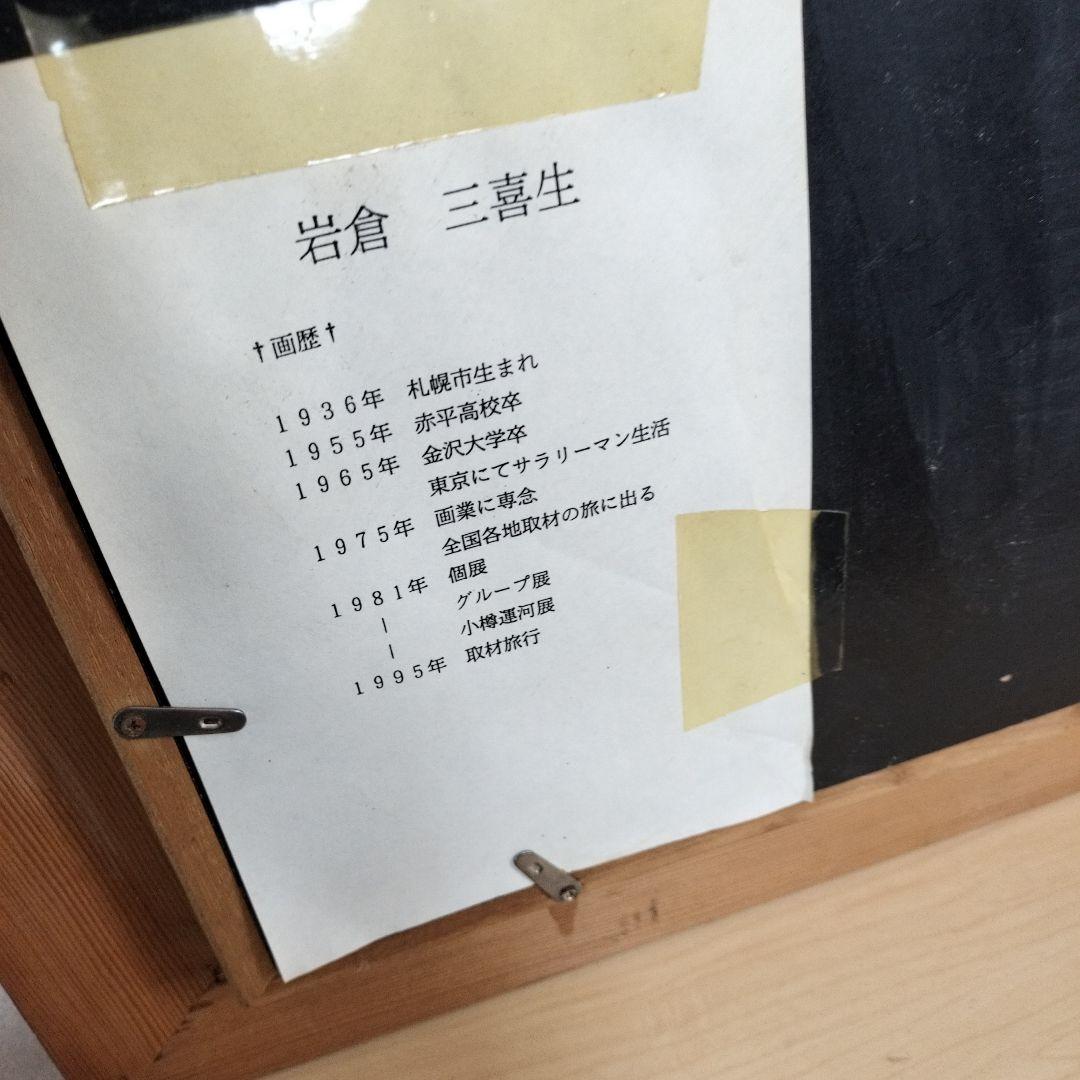 岩倉　三喜生
†画歴†
１９３６年　札幌市生まれ
１９５５年　赤平高校卒
１９６５年　金沢大学卒
東京にてサラリーマン生活
１９７５年　画業に専念
全国各地取材の旅に出る
１９８１年　個展
｜　グループ展
｜　小樽運河展
１９９５年　取材旅行